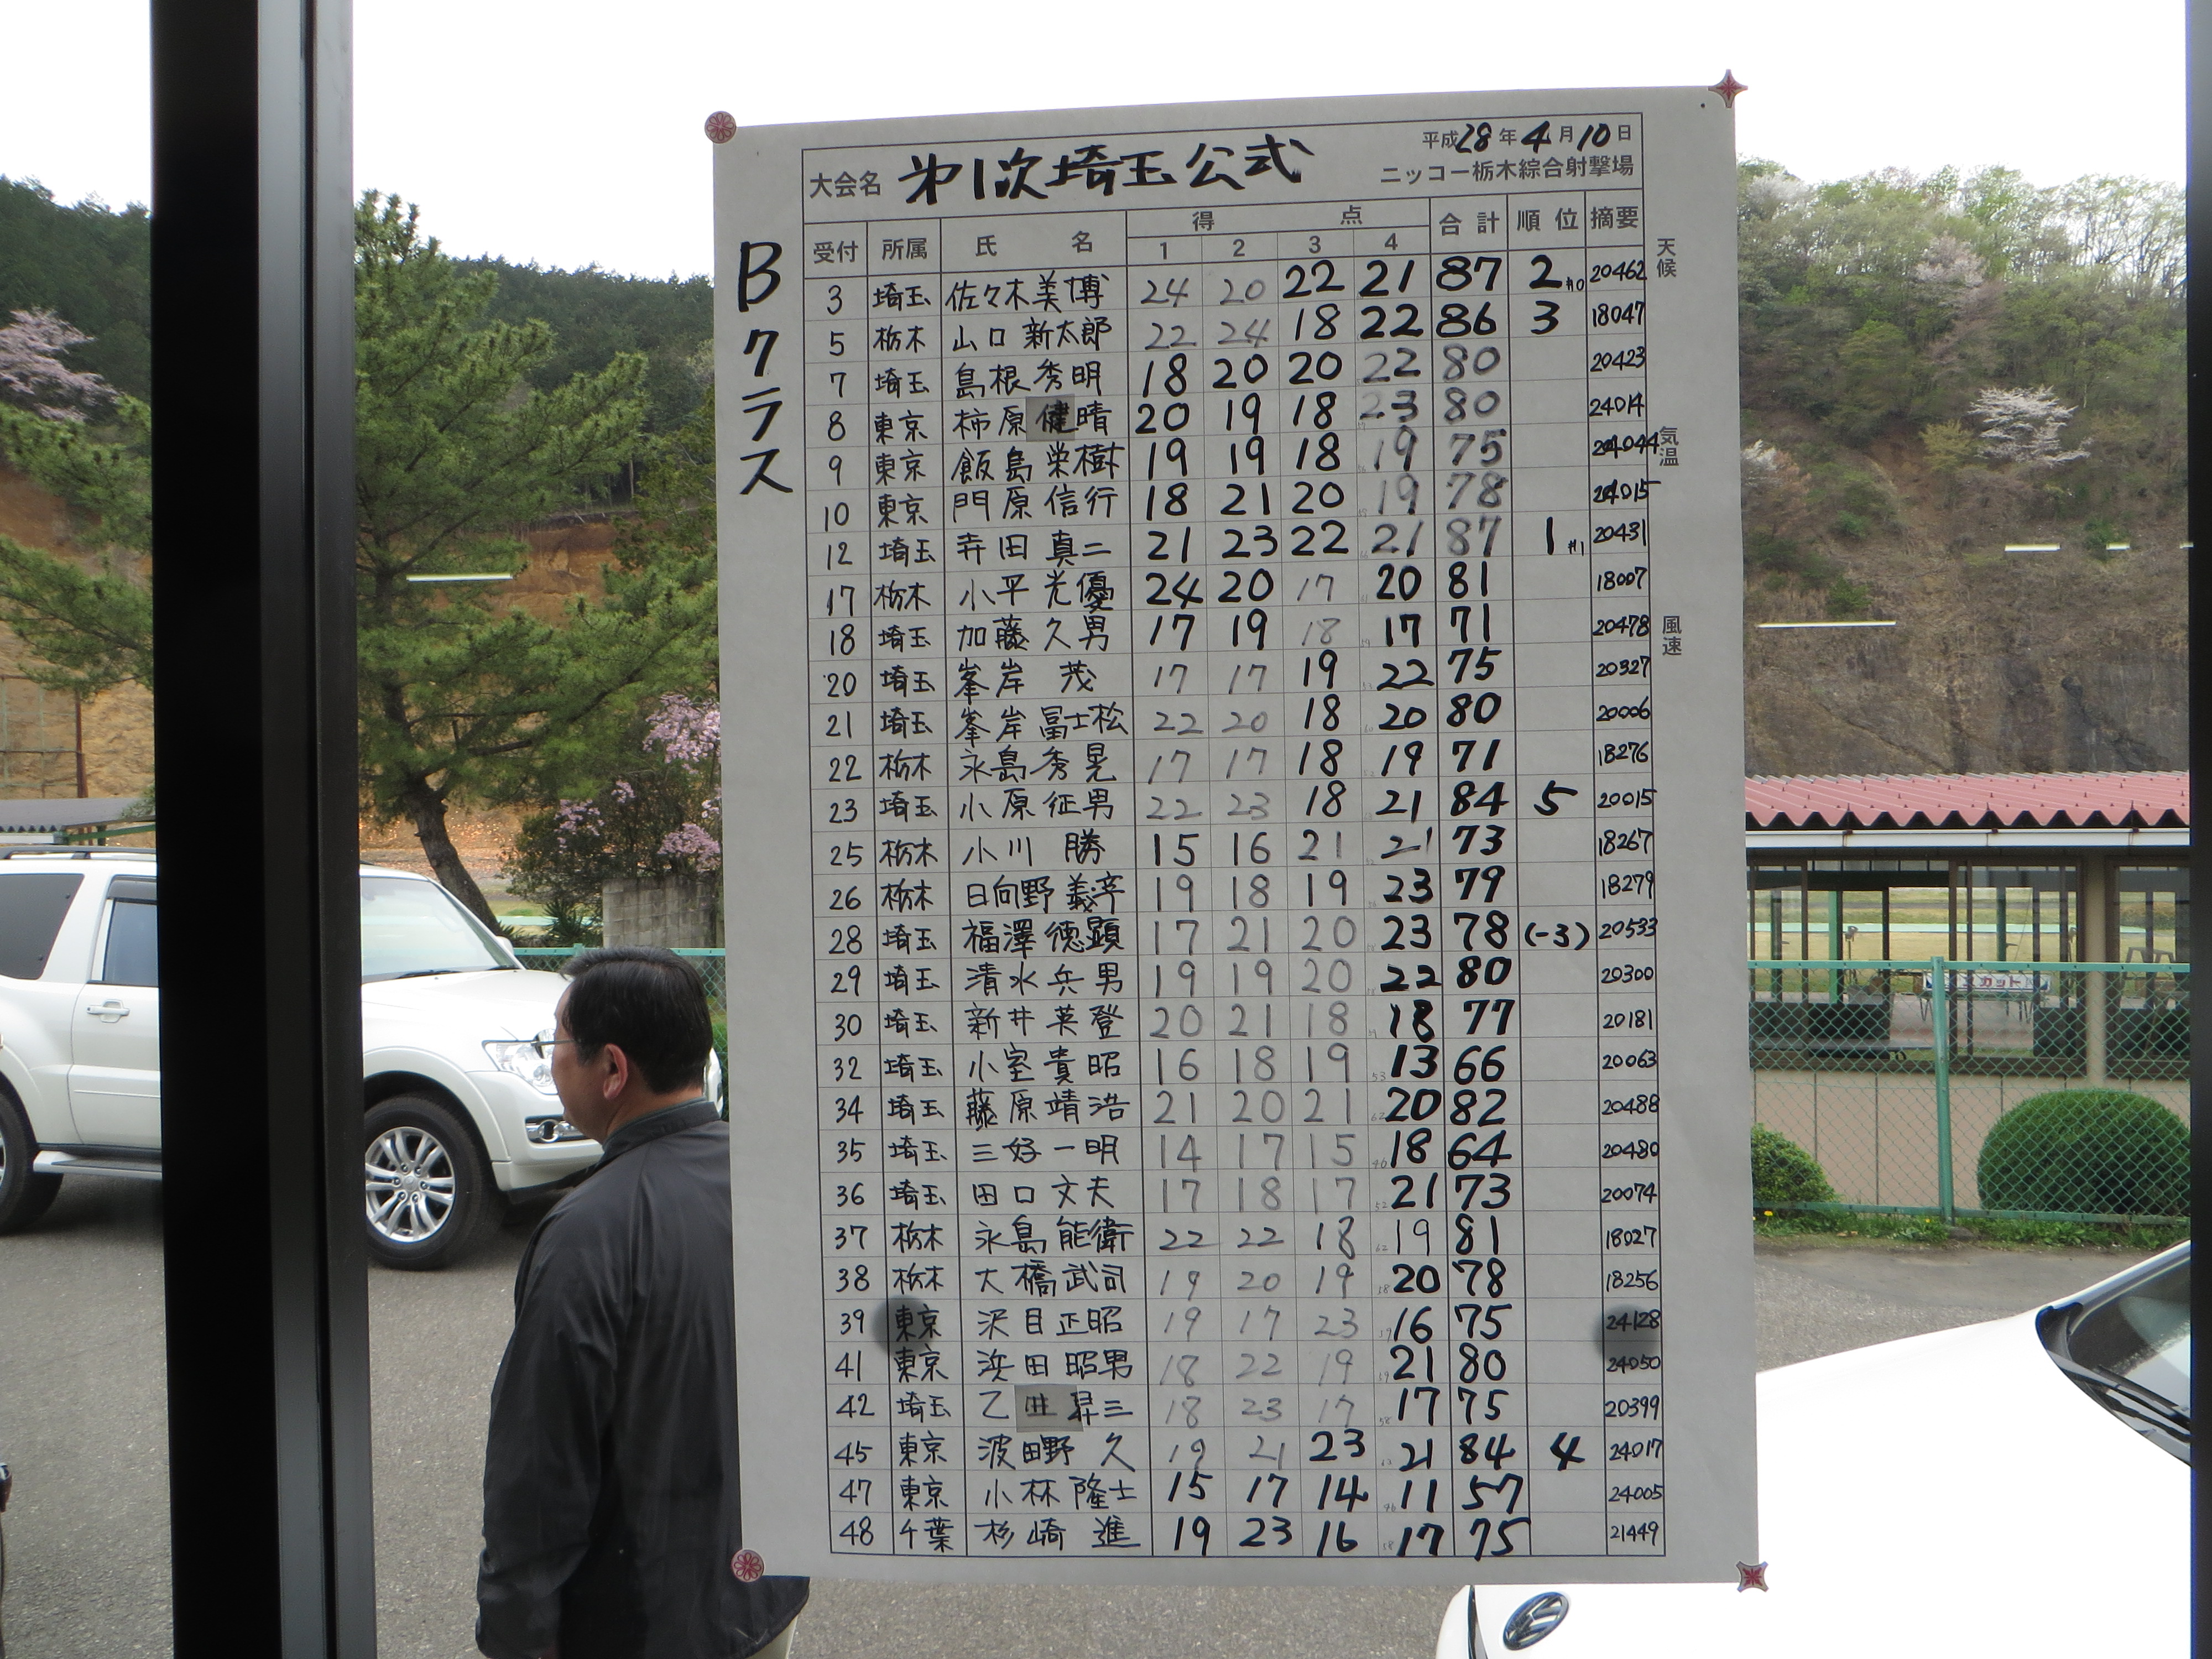 平成28年4月10日
大会名 第1次埼玉公式 ニッコー栃木綜合射撃場
Bクラス
得 点
受付 所属 氏 名 1 2 3 4 合計 順位 摘要
天候
気温
風速
3 埼玉 佐々木美博 24 20 22 21 87 2 20462
5 栃木 山口新太郎 22 24 18 22 86 3 18047
7 埼玉 島根秀明 18 20 20 22 80 20423
8 東京 柿原健晴 20 19 18 23 80 24014
9 東京 飯島栄樹 19 19 18 19 75 24044
10 東京 門原信行 18 21 20 19 78 24015
12 埼玉 寺田真二 21 23 22 21 87 1 20431
17 栃木 小平光優 24 20 17 20 81 18007
18 埼玉 加藤久男 17 19 18 17 71 20478
20 埼玉 峯岸 茂 17 17 19 22 75 20327
21 埼玉 峯岸冨士松 22 20 18 20 80 20006
22 栃木 永島秀晃 17 17 18 19 71 18276
23 埼玉 小原征男 22 23 18 21 84 5 20015
25 栃木 小川 勝 15 16 21 21 73 18267
26 栃木 日向野義幸 19 18 19 23 79 18279
28 埼玉 福澤徳顕 17 21 20 23 78 (-3) 20533
29 埼玉 清水兵男 19 19 20 22 80 20300
30 埼玉 新井英登 20 21 18 18 77 20181
32 埼玉 小室貴昭 16 18 19 13 66 20063
34 埼玉 藤原靖浩 21 20 21 20 82 20488
35 埼玉 三好一明 14 17 15 18 64 20480
36 埼玉 田口文夫 17 18 17 21 73 20074
37 栃木 永島能衛 22 22 18 19 81 18027
38 栃木 大橋武司 19 20 19 20 78 18256
39 東京 沢目正昭 19 17 23 16 75 24128
41 東京 浜田昭男 18 22 19 21 80 24050
42 埼玉 乙井昇三 18 23 17 17 75 20399
45 東京 波田野 久 19 21 23 21 84 4 24017
47 東京 小林隆士 15 17 14 11 57 24005
48 千葉 杉崎 進 19 23 16 17 75 21449